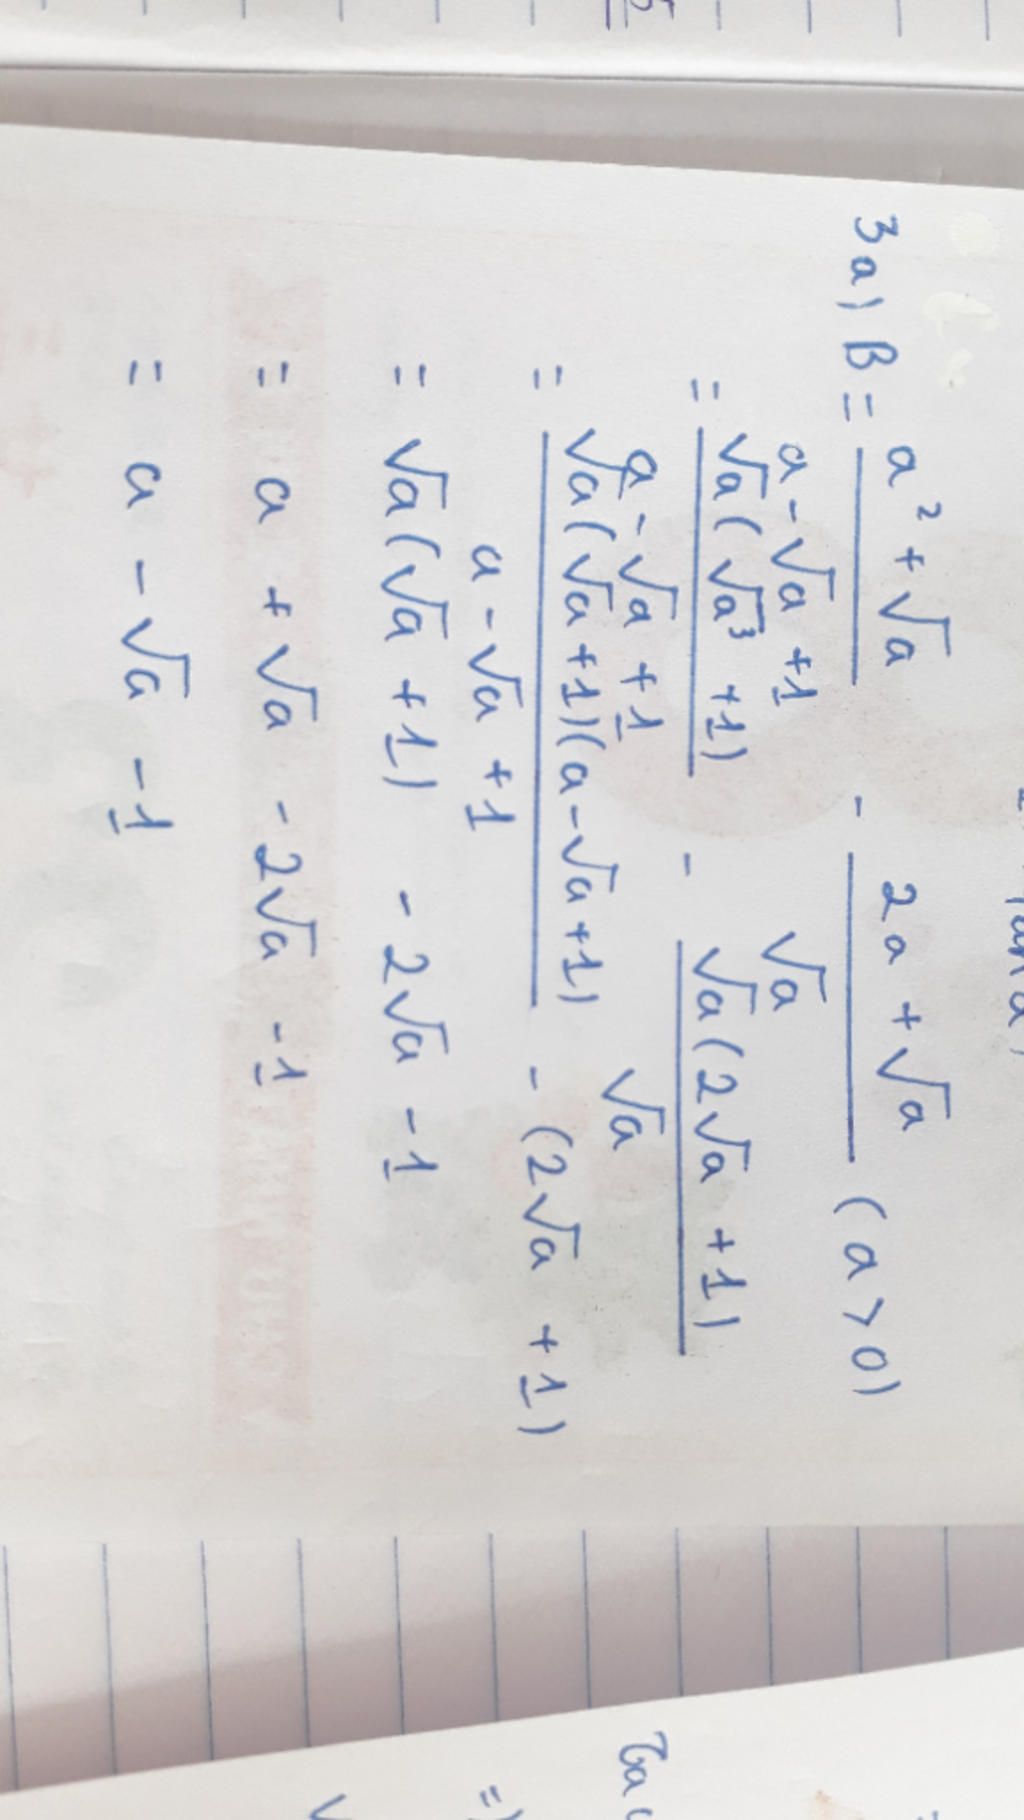 3a) B = a² + √a / a - √a + 1 - 2a + √a / √a (a > 0)
= √a(√a³ + 1) / a - √a + 1 - √a(2√a + 1) / √a
= √a(√a + 1)(a - √a + 1) / a - √a + 1 - (2√a + 1)
= √a(√a + 1) - 2√a - 1
= a + √a - 2√a - 1
= a - √a - 1